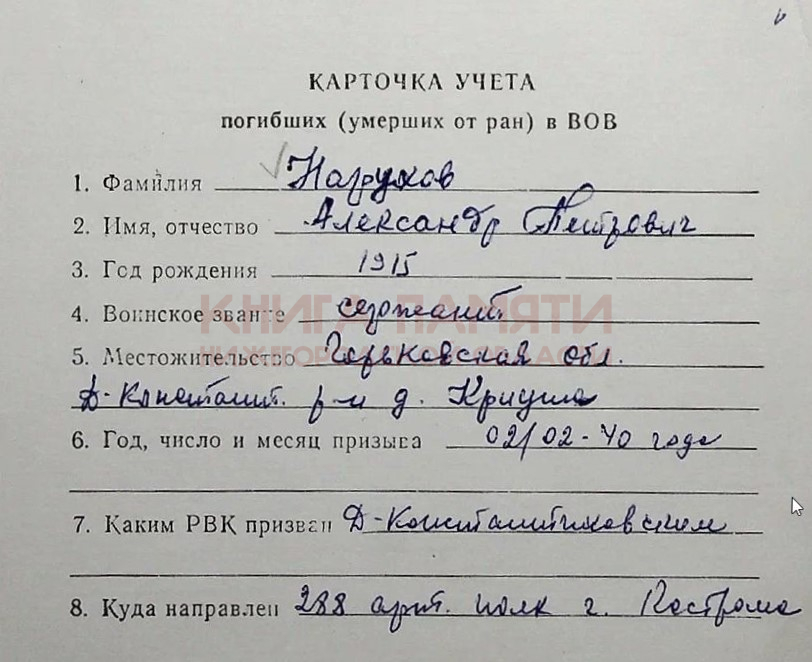 КАРТОЧКА УЧЕТА
погибших (умерших от ран) в ВОВ
1. Фамилия Нагрухов
2. Имя, отчество Александр Петрович
3. Год рождения 1915
4. Воинское звание сержант
КНИГА ПАМЯТИ
НИЖЕГОРОДСКОЙ ОБЛАСТИ
5. Местожительство Горьковская обл.
Д-Констант. р-н д. Криуша
6. Год, число и месяц призыва 02/02-40 года
7. Каким РВК призван Д-Константиновским
8. Куда направлен 288 арт. полк г. Кострома